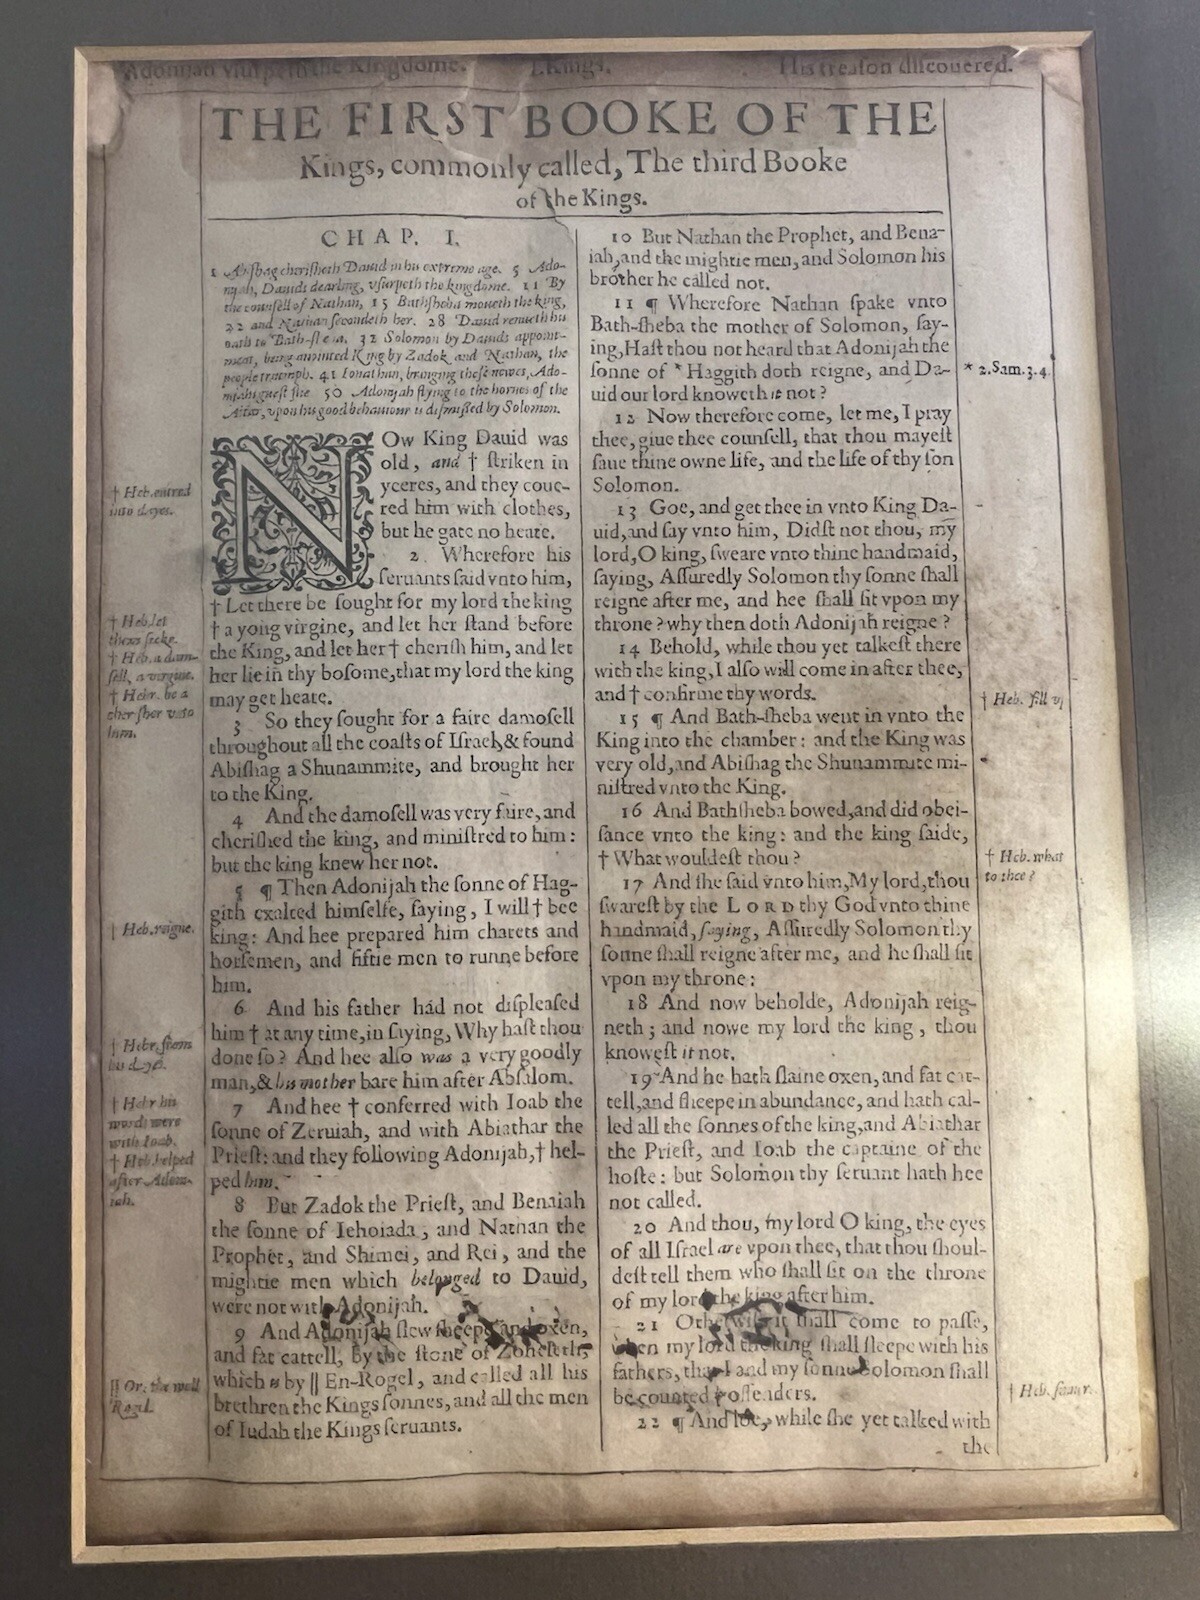 Adonijah vsurpeth the Kingdome. I. Kings. His treason discouered.
THE FIRST BOOKE OF THE
Kings, commonly called, The third Booke
of the Kings.
CHAP. I.
1 Abiſhag cheriſheth Dauid in his extreme age. 5 Ado-
nijah, Dauids dearling, vſurpeth the kingdome. 11 By
the counſell of Nathan, 15 Bathſheba moueth the king,
22 and Nathan ſecondeth her. 28 Dauid renueth his
oath to Bath-ſheba. 32 Solomon by Dauids appoint-
ment, being anointed King by Zadok and Nathan, the
people triumph. 41 Ionathan, bringing theſe newes, Ado-
nijahs gueſts flie 50 Adonijah flying to the hornes of the
Altar, vpon his good behauiour is diſmiſſed by Solomon.
NOw King Dauid was
old, and † ſtriken in
yeeres, and they coue-
red him with clothes,
but he gate no heate.
2 Wherefore his
ſeruants ſaid vnto him,
† Let there be ſought for my lord the king
† a yong virgine, and let her ſtand before
the King, and let her † cheriſh him, and let
her lie in thy boſome, that my lord the king
may get heate.
3 So they ſought for a faire damoſell
throughout all the coaſts of Iſrael, & found
Abiſhag a Shunammite, and brought her
to the King.
4 And the damoſell was very faire, and
cheriſhed the king, and miniſtred to him:
but the king knew her not.
5 ¶ Then Adonijah the ſonne of Hag-
gith exalted himſelfe, ſaying, I will † bee
king: And hee prepared him charets and
horſemen, and fiftie men to runne before
him.
6 And his father had not diſpleaſed
him † at any time, in ſaying, Why haſt thou
done ſo? And hee alſo was a very goodly
man, & his mother bare him after Abſalom.
7 And hee † conferred with Ioab the
ſonne of Zeruiah, and with Abiathar the
Prieſt: and they following Adonijah, † hel-
ped him.
8 But Zadok the Prieſt, and Benaiah
the ſonne of Iehoiada, and Nathan the
Prophet, and Shimei, and Rei, and the
mightie men which belonged to Dauid,
were not with Adonijah.
9 And Adonijah ſlew ſheepe and oxen,
and fat cattell, by the ſtone of Zoheleth,
which is by || En-Rogel, and called all his
brethren the Kings ſonnes, and all the men
of Iudah the Kings ſeruants.
† Heb. entred
into dayes.
† Heb. let
them ſeeke.
† Heb. a dam-
ſell, a virgine.
† Hebr. be a
cheriſher vnto
him.
† Heb. reigne.
† Hebr. from
his dayes.
† Hebr his
words were
with Ioab.
† Heb. helped
after Adoni-
iah.
|| Or, the well
Rogel.
10 But Nathan the Prophet, and Bena-
iah, and the mightie men, and Solomon his
brother he called not.
11 ¶ Wherefore Nathan ſpake vnto
Bath-ſheba the mother of Solomon, ſay-
ing, Haſt thou not heard that Adonijah the
ſonne of * Haggith doth reigne, and Da-
uid our lord knoweth it not?
12 Now therefore come, let me, I pray
thee, giue thee counſell, that thou mayeſt
ſaue thine owne life, and the life of thy ſon
Solomon.
13 Goe, and get thee in vnto King Da-
uid, and ſay vnto him, Didſt not thou, my
lord, O king, ſweare vnto thine handmaid,
ſaying, Aſſuredly Solomon thy ſonne ſhall
reigne after me, and hee ſhall ſit vpon my
throne? why then doth Adonijah reigne?
14 Behold, while thou yet talkeſt there
with the king, I alſo will come in after thee,
and † confirme thy words.
15 ¶ And Bath-ſheba went in vnto the
King into the chamber: and the King was
very old, and Abiſhag the Shunammite mi-
niſtred vnto the King.
16 And Bathſheba bowed, and did obei-
ſance vnto the king: and the king ſaide,
† What wouldeſt thou?
17 And ſhe ſaid vnto him, My lord, thou
ſwareſt by the LORD thy God vnto thine
handmaid, ſaying, Aſſuredly Solomon thy
ſonne ſhall reigne after me, and he ſhall ſit
vpon my throne:
18 And now beholde, Adonijah reig-
neth; and nowe my lord the king, thou
knoweſt it not.
19 And he hath ſlaine oxen, and fat cat-
tell, and ſheepe in abundance, and hath cal-
led all the ſonnes of the king, and Abiathar
the Prieſt, and Ioab the captaine of the
hoſte: but Solomon thy ſeruant hath hee
not called.
20 And thou, my lord O king, the eyes
of all Iſrael are vpon thee, that thou ſhoul-
deſt tell them who ſhall ſit on the throne
of my lord the king after him.
21 Otherwiſe it ſhall come to paſſe,
when my lord the king ſhall ſleepe with his
fathers, that I and my ſonne Solomon ſhall
be counted † offenders.
22 ¶ And loe, while ſhe yet talked with
the
* 2. Sam. 3. 4.
† Heb. fill vp
† Heb. what
to thee?
† Heb.